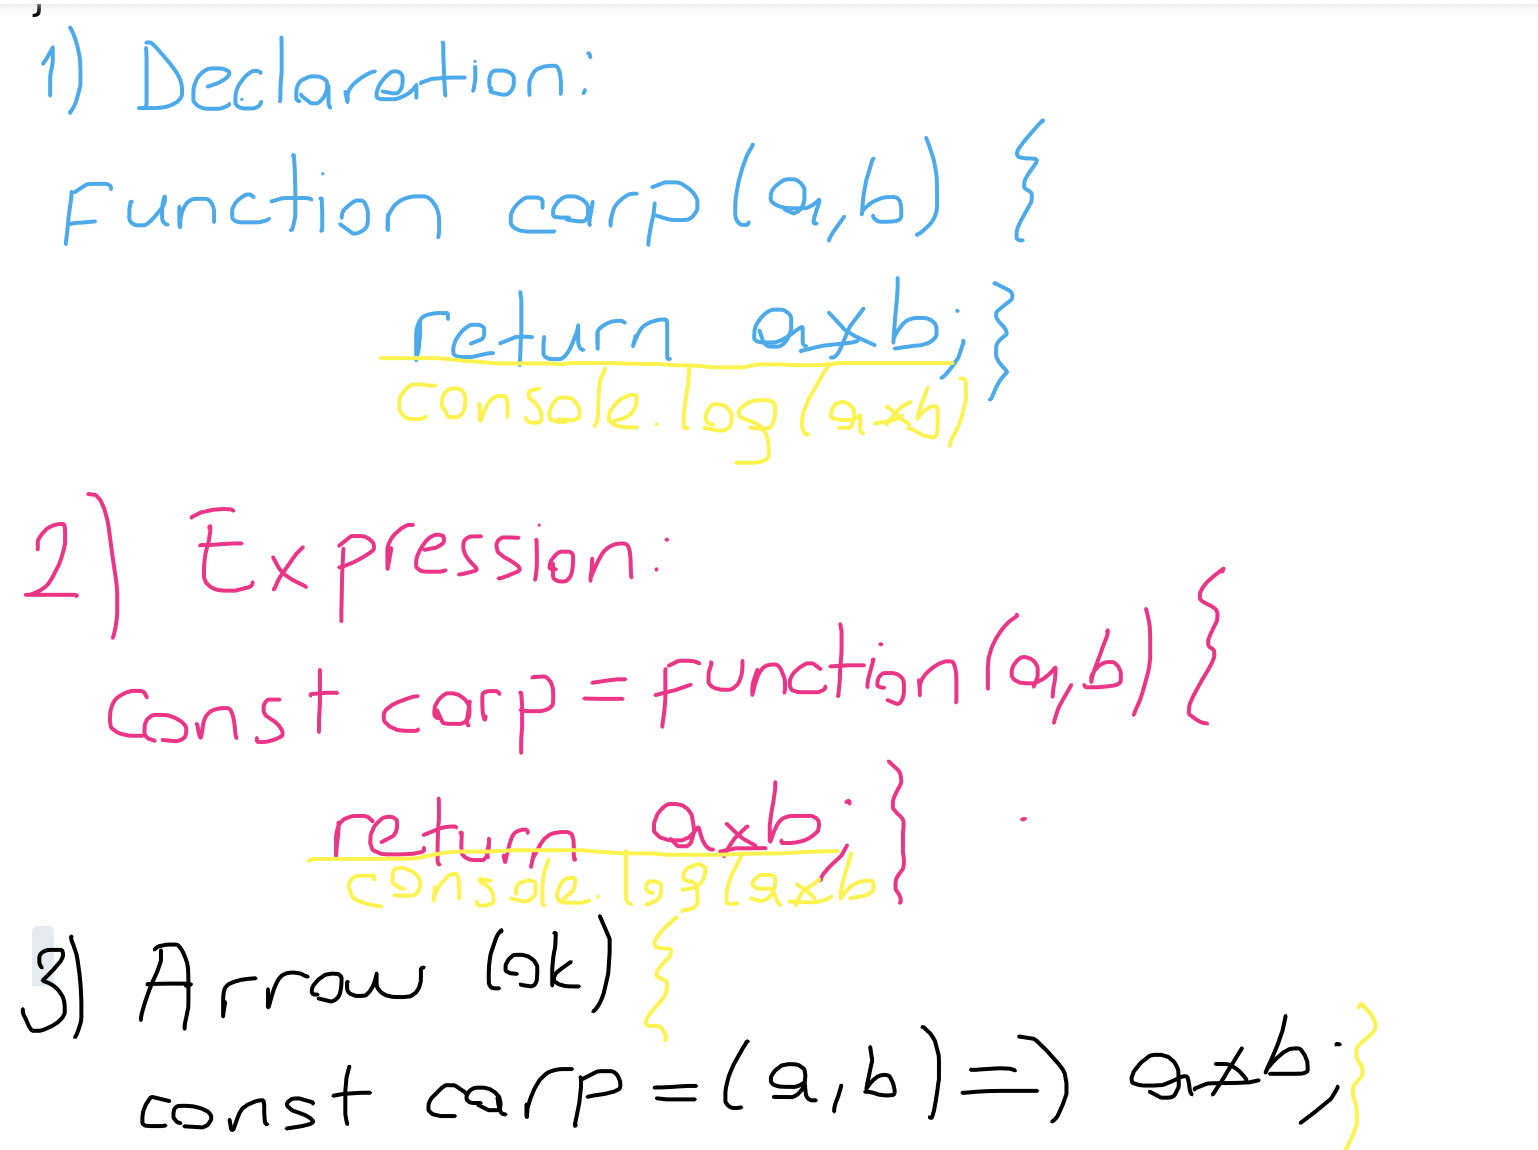 1) Declaration:
Function carp(a,b) {
return axb;}
console.log(axb)
2) Expression:
const carp = function(a,b) {
return axb;}
console.log(axb
3) Arrow (ok) {
const carp = (a,b) => axb;}